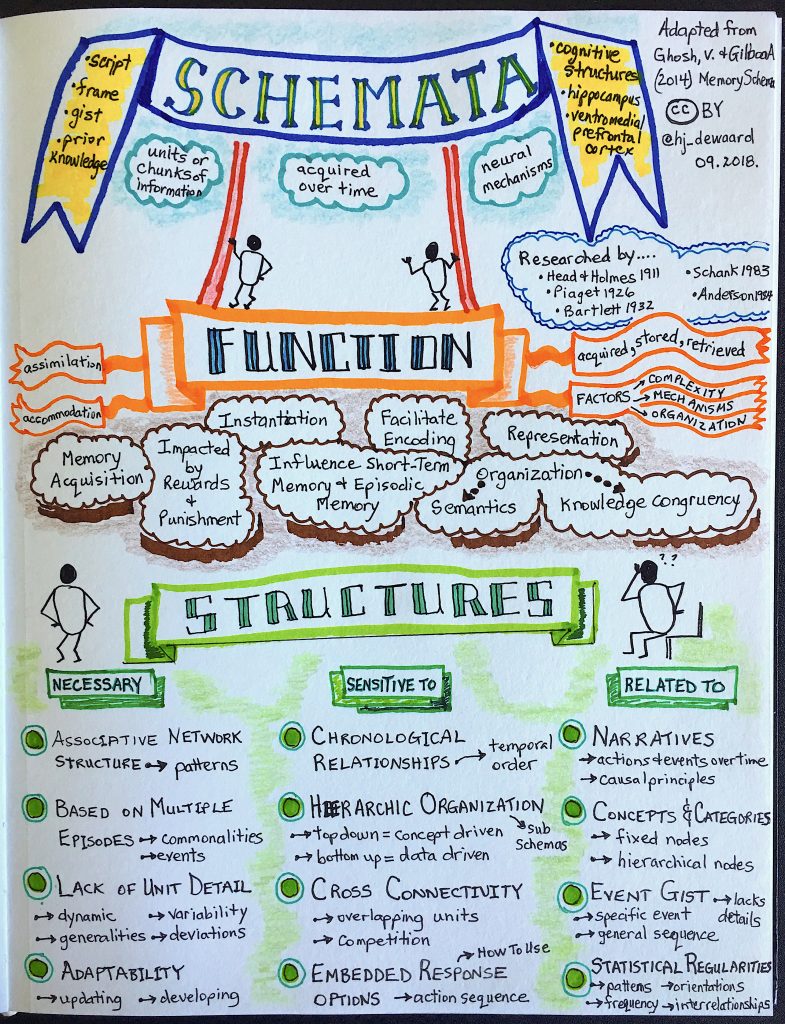 SCHEMATA
• script
• frame
• gist
• prior
knowledge
• cognitive
structures
• hippocampus
• ventromedial
prefrontal
cortex
Adapted from
Ghosh, V. & Gilboa A
(2014) Memory Schema
CC BY
@hj_dewaard
09.2018.
units or
chunks of
information
acquired
over time
neural
mechanisms
Researched by....
• Head & Holmes 1911
• Piaget 1926
• Bartlett 1932
• Schank 1983
• Anderson 1984
FUNCTION
assimilation
accommodation
acquired, stored, retrieved
FACTORS → COMPLEXITY
→ MECHANISMS
→ ORGANIZATION
Instantiation
Facilitate
Encoding
Representation
Memory
Acquisition
Impacted
by
Rewards
&
Punishment
Influence Short-Term
Memory & Episodic
Memory
Organization
Semantics
Knowledge Congruency
??
STRUCTURES
NECESSARY
ASSOCIATIVE NETWORK
STRUCTURE → patterns
BASED ON MULTIPLE
EPISODES → commonalities
→ events
LACK OF UNIT DETAIL
→ dynamic → variability
→ generalities → deviations
ADAPTABILITY
→ updating → developing
SENSITIVE TO
CHRONOLOGICAL
RELATIONSHIPS → temporal
order
HIERARCHIC ORGANIZATION
→ top down = concept driven
→ sub
schemas
→ bottom up = data driven
CROSS CONNECTIVITY
→ overlapping units
→ competition
EMBEDDED RESPONSE → How To Use
OPTIONS → action sequence
RELATED TO
NARRATIVES
→ actions & events overtime
→ causal principles
CONCEPTS & CATEGORIES
→ fixed nodes
→ hierarchical nodes
EVENT GIST → lacks
details
→ specific event
→ general sequence
STATISTICAL REGULARITIES
→ pattens → orientations
→ frequency → interrelationships